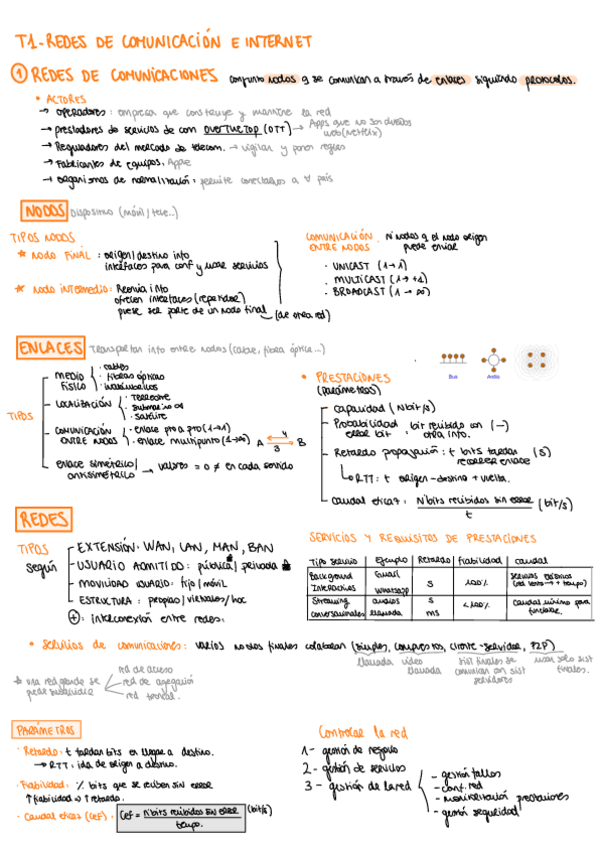 T1-REDES DE COMUNICACIÓN E INTERNET
① REDES DE COMUNICACIONES conjunto nodos q se comunican a través de enlaces siguiendo protocolos.
• ACTORES
→ operadores: empresa que construye y mantiene la red
→ prestadores de servicios de com OVERTHETOP (OTT) → Apps que no son dueños
web (Netflix)
→ Reguladores del mercado de telecom. → vigilar y poner reglas
→ Fabricantes de equipos. Apple
→ organismos de normalización: permite conectarnos a ∀ país
NODOS Dispositivo (móvil/tele..)
TIPOS NODOS
★ nodo FINAL: origen/destino info
interfaces para conf y usar servicios
★ nodo intermedio: Reenvía info
ofrecen interfaces (repetidor)
puede ser parte de un nodo final (de otra red)
COMUNICACIÓN ENTRE NODOS
nº nodos q el nodo origen
puede enviar
· UNICAST (1→1)
· MULTICAST (1→+1)
· BROADCAST (1→∞)
ENLACES Transportan info entre nodos (cable, fibra óptica...)
Bus Anillo
TIPOS
MEDIO FÍSICO
· cables
· fibras ópticas
· inalámbricos
LOCALIZACIÓN
· Terrestre
· submarino
· satélite
COMUNICACIÓN ENTRE NODOS
· enlace pto a pto (1→1)
· enlace multipunto (1→∞)
A 4 3 B
enlace simétrico/
antisimétrico → valores = o ≠ en cada sentido
• PRESTACIONES
(parámetros)
Capacidad (Nbit/s)
Probabilidad error bit: bit recibido con (-)
otra info.
Retardo propagación: t bits tardan (s)
recorrer enlace
↳ RTT: t origen-destino + vuelta.
Caudal eficaz: Nbits recibidos sin error / t (bit/s)
REDES
TIPOS según
EXTENSIÓN: WAN, LAN, MAN, BAN
USUARIO ADMITIDO: pública/privada
MOVILIDAD USUARIO: fijo/móvil
ESTRUCTURA: propias/virtuales/hoc
⊕: interconexión entre redes.
SERVICIOS Y REQUISITOS DE PRESTACIONES
Tipo servicio Ejemplo Retardo fiabilidad caudal
Background Gmail
Interactivos Whatsapp s 100%
Streaming audios s
conversacionales llamada ms <100% Caudal mínimo para
funcionar.
• Servicios de comunicaciones: varios nodos finales colaboran (simples, compuestos, cliente-servidor, P2P)
llamada video llamada
sist finales se comunican con sist servidores
usan solo sist finales.
★ una red grande se puede subdividir
red de acceso
red de agregación
red troncal.
PARÁMETROS
· Retardo: t tardan bits en llegar a destino.
→ RTT: ida de origen a destino.
· Fiabilidad: % bits que se reciben sin error
↑fiabilidad ⇒ ↑retardo.
· Caudal eficaz (Cef). Cef = Nbits recibidos SIN error / tiempo. (bit/s)
Controlar la red
1- gestión de negocio
2- gestión de servicios
3- gestión de la red
- gestión fallos
- conf. red
- monitorización prestaciones
- gestión seguridad